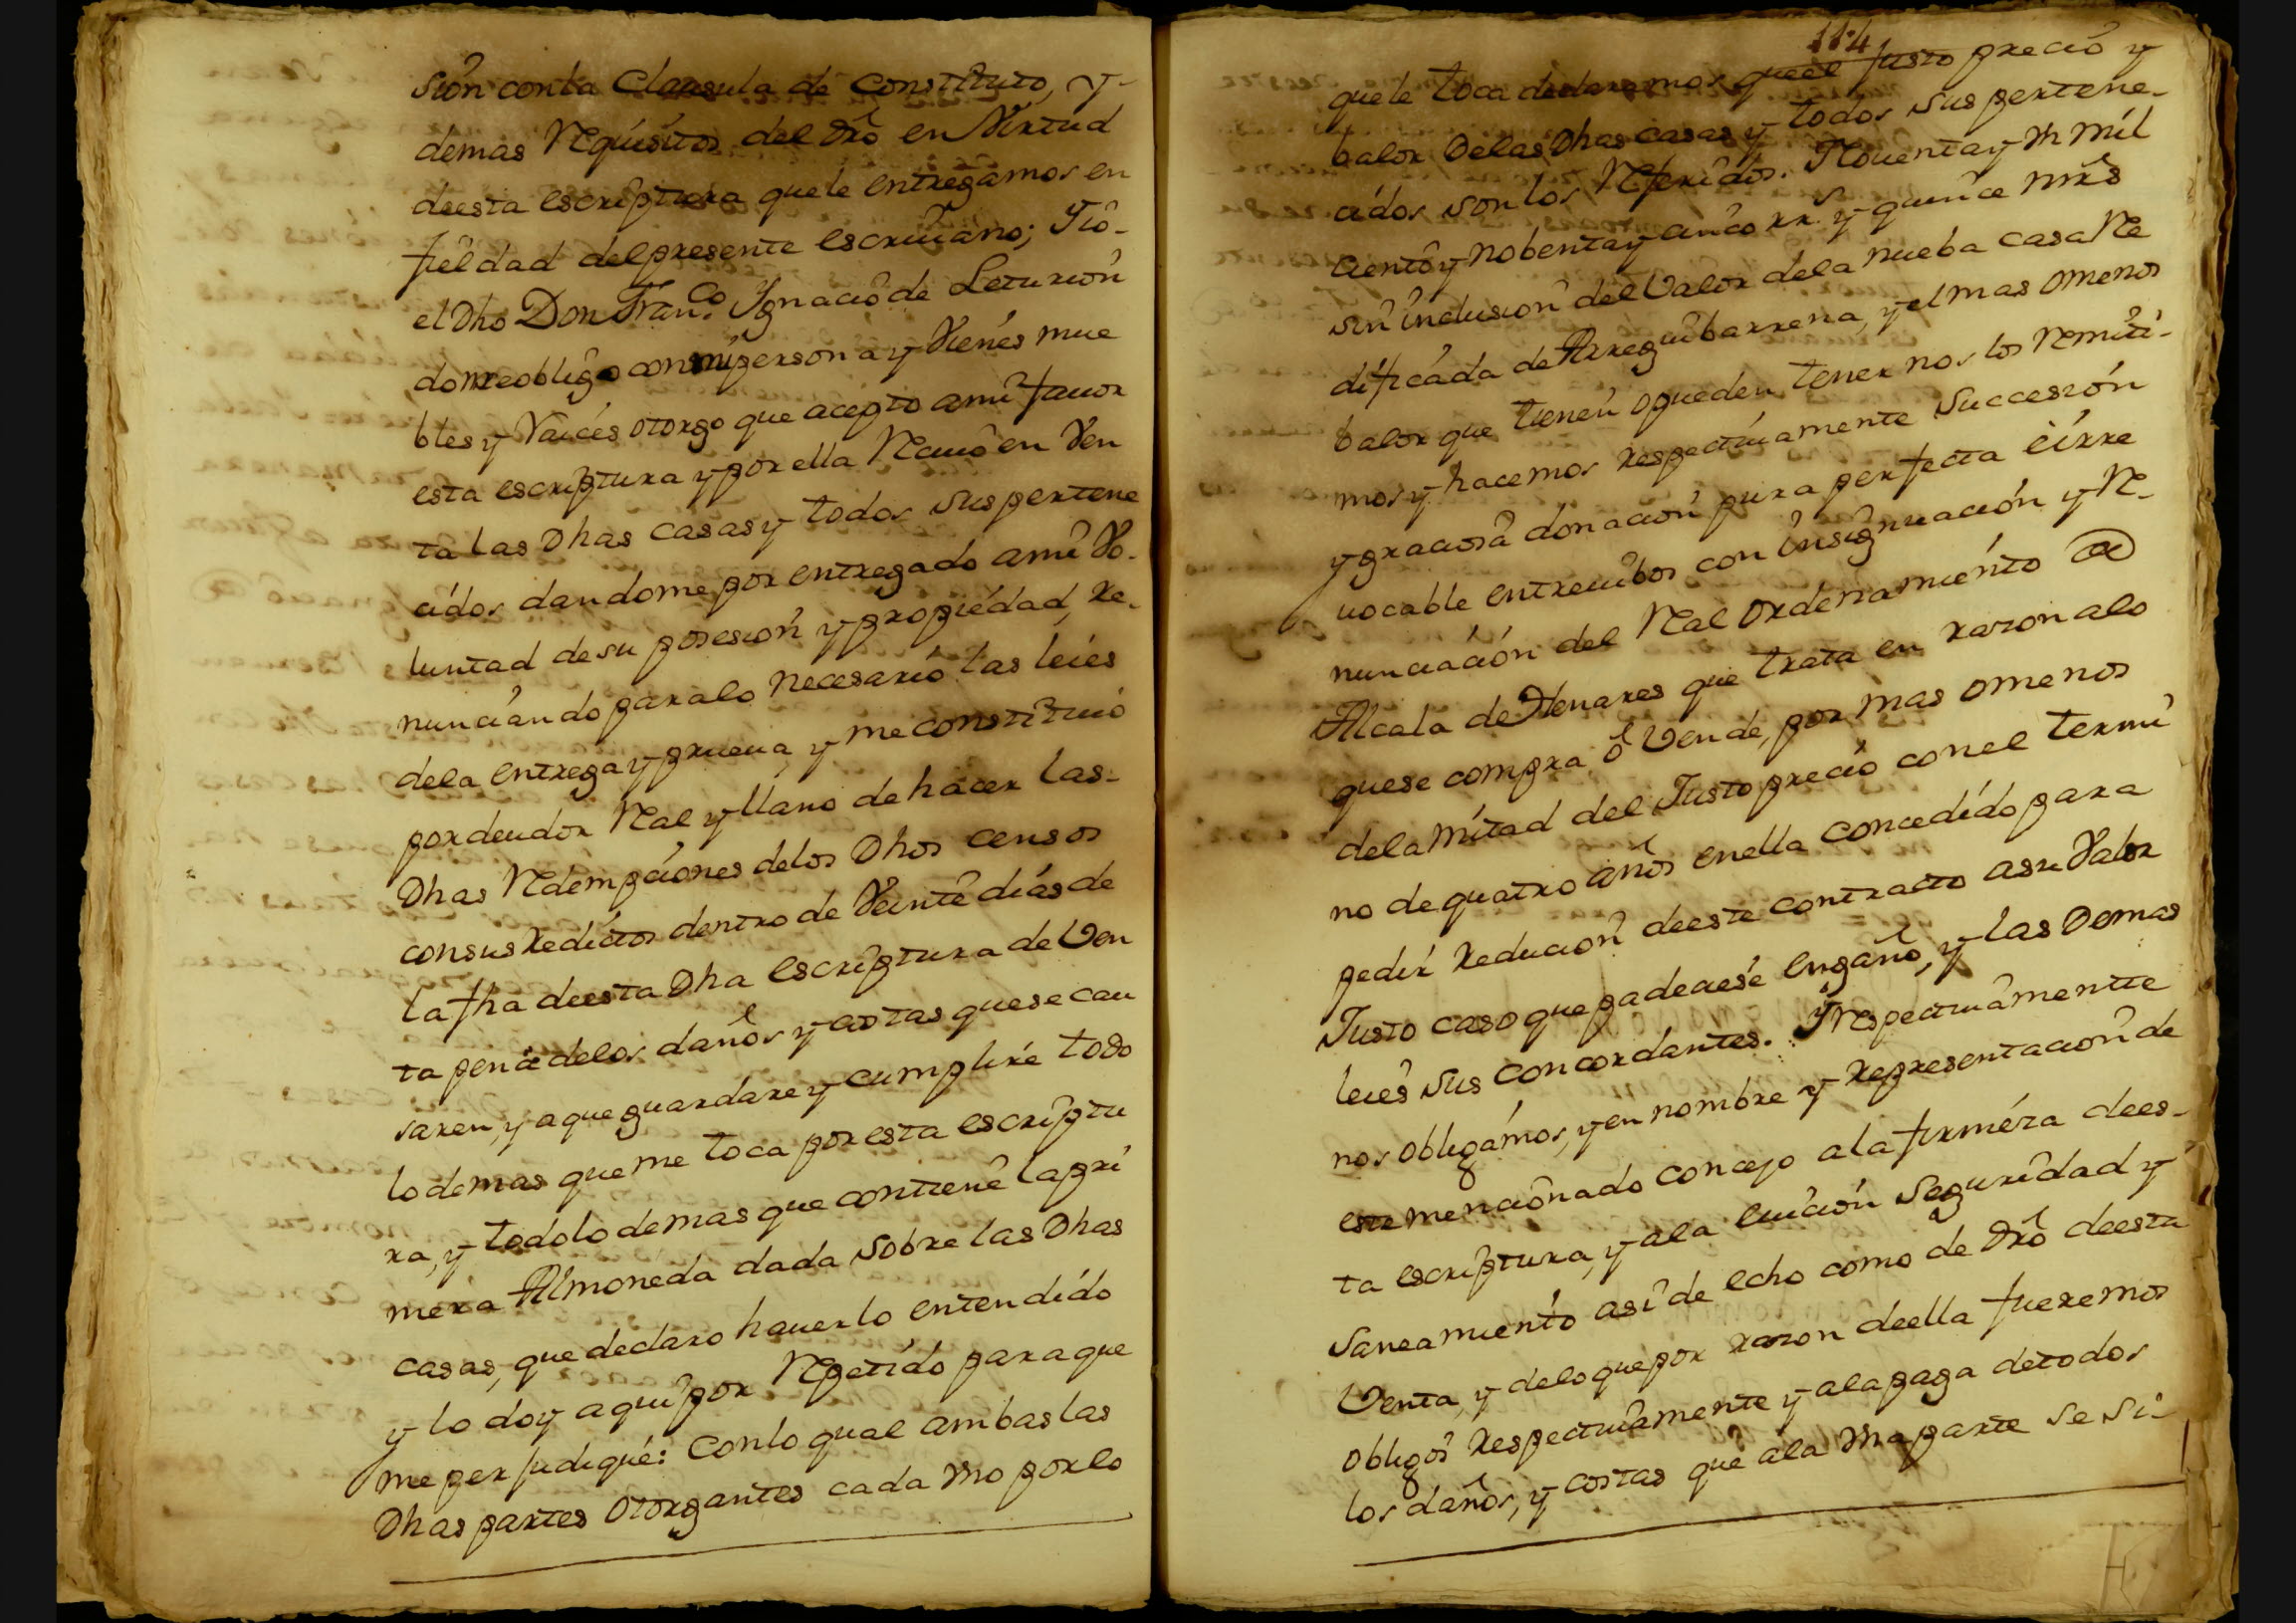 sion con la Clausula de Constituto, y-
demas Requisitos del dro en Virtud
deesta escriptura quele entregamos en
fieldad delpresente escriuano; Yio-
el Dho Don Franco Ygnacio de Leturion
domreobligo conmipersona y Vienes mue
bles y Raices otorgo que acepto ami fauor
esta escriptura y por ella Reciuo en Ven
ta las Dhas casas y todos sus pertene
cidos dandome por entregado ami Vo-
luntad de su posesion y propiedad, Re-
nunciando paralo necesario las leies
dela entrega y prueua, y me constituio
por deudor Real y llano de hacer las-
Dhas Redempciones delos Dhos censos
consus Redictos dentro de Veinte dias de
la fha deesta Dha escriptura de Ven
ta pena delos daños y costas quese cau
saren, y a que guardare y cumplire todo
lo demas que me toca por esta escriptu
ra, y todolo demas que contiene la pri
mera Almoneda dada sobre las Dhas
casas, que declaro hauerlo entendido
y lo doy aqui por Repetido para que
me perjudique: Conlo qual ambas las
Dhas partes otorgantes cada vno porlo
114
quele toca declaramos queel justo precio y
balor Delas Dhas casas y todos sus pertene-
cidos son los Referidos. Nouenta y vn mil
ciento y nobenta y cinco rrs. y quince mrs
sin inclusion del Valor dela nueba casa Re
dificada de Arreguibarrena, y el mas omenos
balor que tienen o pueden tener nos los Remiti-
mos y hacemos respectiuamente succesion
y graciosa donacion pura perfecta e irre
uocable entreuibos con insignuacion y Re-
nunciacion del Real Ordenamiento de
Alcala de Henares que trata en razon alo
quese compra, ó Vende, por mas omenos
dela mitad del Justo precio conel termi
no de quatro años enella concedido para
pedir Reducion deeste contracto asu Valor
Justo caso que padeciese engaño, y las Demas
leies sus concordantes. Y respectiuamentte
nos obligamos, y en nombre y Representacion de
este mencionado concejo ala firmeza dees-
ta escriptura, y ala euicion seguridad y
saneamiento asi de echo como de dro deesta
Venta, y delo que por razon deella fueremos
obligos Respectiuamente y ala paga detodos
los daños, y costas que ála vna parte se si-